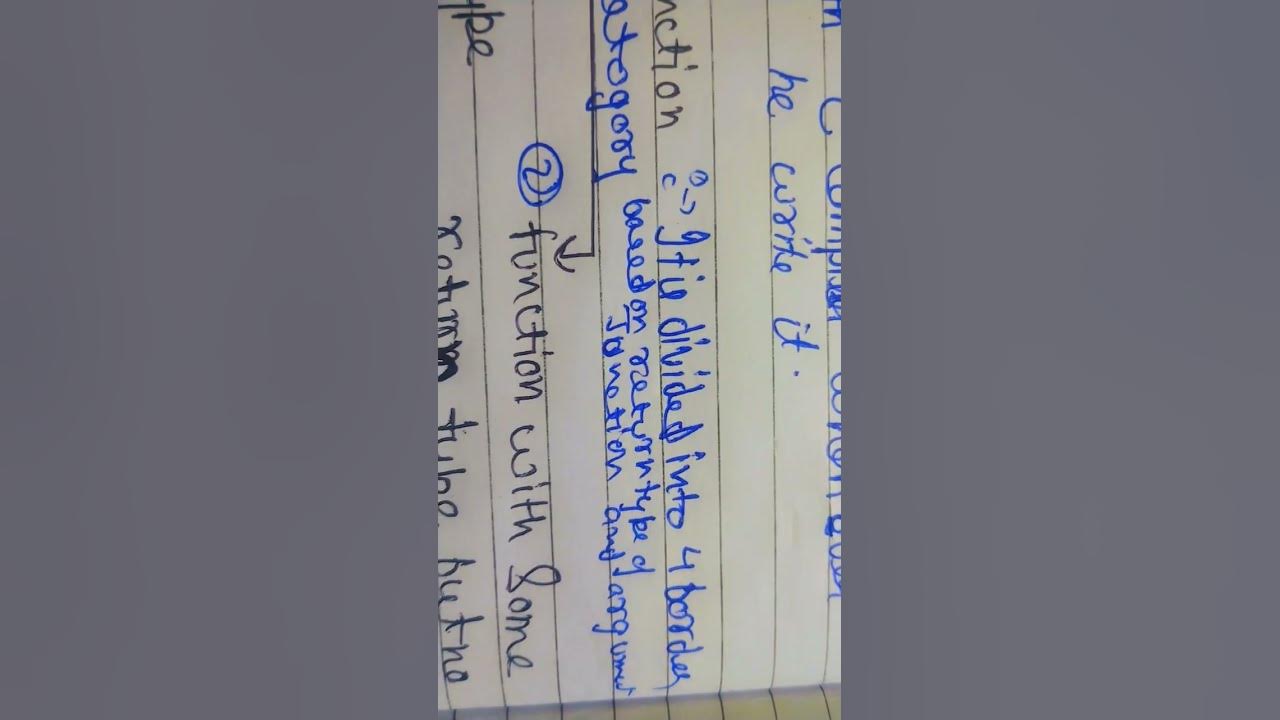 he write it.
nction :→ It is divided into 4 border
category based on return type of
function and argument
② function with Some
ype return type but no